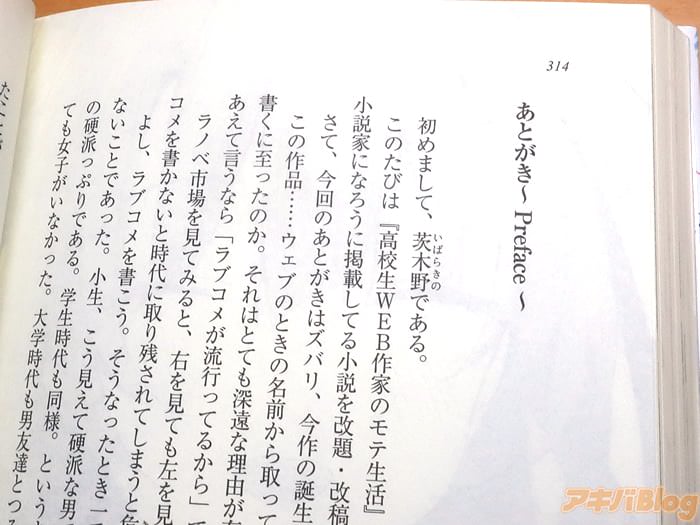 314
あとがき～ Preface ～
初めまして、茨木野である。
いばらきの
このたびは『高校生WEB作家のモテ生活』
小説家になろうに掲載してる小説を改題・改稿
さて、今回のあとがきはズバリ、今作の誕生
この作品……ウェブのときの名前から取って
書くに至ったのか。それはとても深遠な理由が
あえて言うなら「ラブコメが流行ってるから」で
ラノベ市場を見てみると、右を見ても左を見
コメを書かないと時代に取り残されてしまうと危
よし、ラブコメを書こう。そうなったとき一
ないことであった。小生、こう見えて硬派な男
の硬派っぷりである。学生時代も同様。という
ても女子がいなかった。大学時代も男友達とつ
アキバBlog